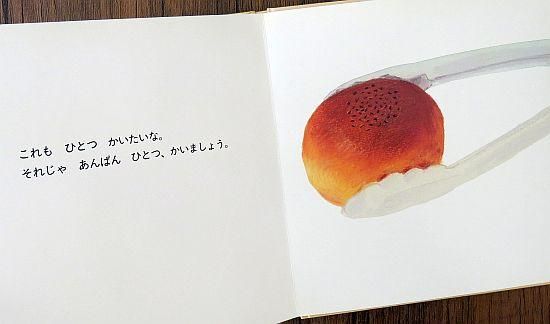 これも　ひとつ　かいたいな。
それじゃ　あんぱん　ひとつ、かいましょう。